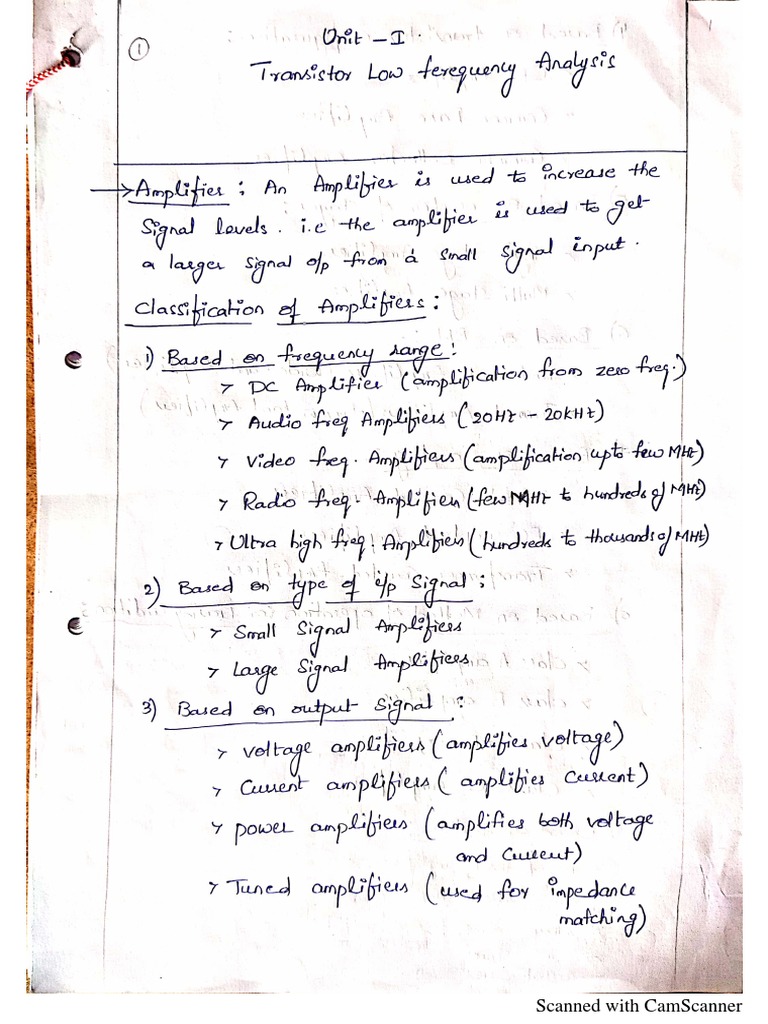 1
Unit - I
Transistor Low ferequency Analysis
→ Amplifier : An Amplifier is used to increase the
Signal levels. i.e the amplifier is used to get
a larger signal o/p from a small signal input.
Classification of Amplifiers :
1) Based on frequency range :
> DC Amplifier (amplification from zero freq.)
> Audio freq Amplifiers (20Hz - 20kHz)
> Video freq. Amplifiers (amplification upto few MHz)
> Radio freq. Amplifiers (few MHz to hundreds of MHz)
> Ultra high freq. Amplifiers (hundreds to thousands of MHz)
2) Based on type of i/p Signal :
> Small Signal Amplifiers
> Large Signal Amplifiers
3) Based on output Signal :
> voltage amplifiers (amplifies voltage)
> Current amplifiers (amplifies Current)
> power amplifiers (amplifies both voltage
and Current)
> Tuned amplifiers (used for impedance
matching)
Scanned with CamScanner